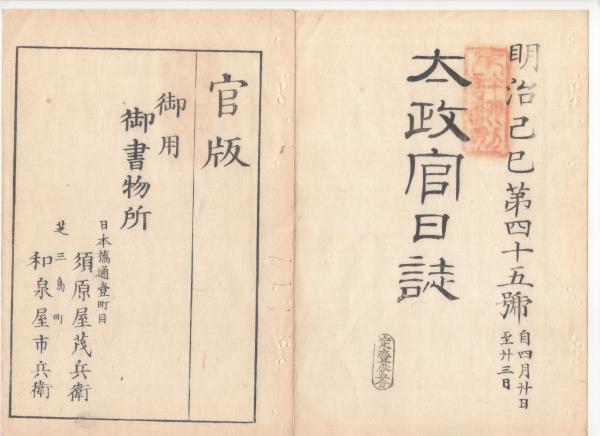 明治己巳第四十五號
自四月廿日
至廿三日
太政官日誌
官版
御用
御書物所
日本橋通壹町目
須原屋茂兵衛
芝三島町
和泉屋市兵衛